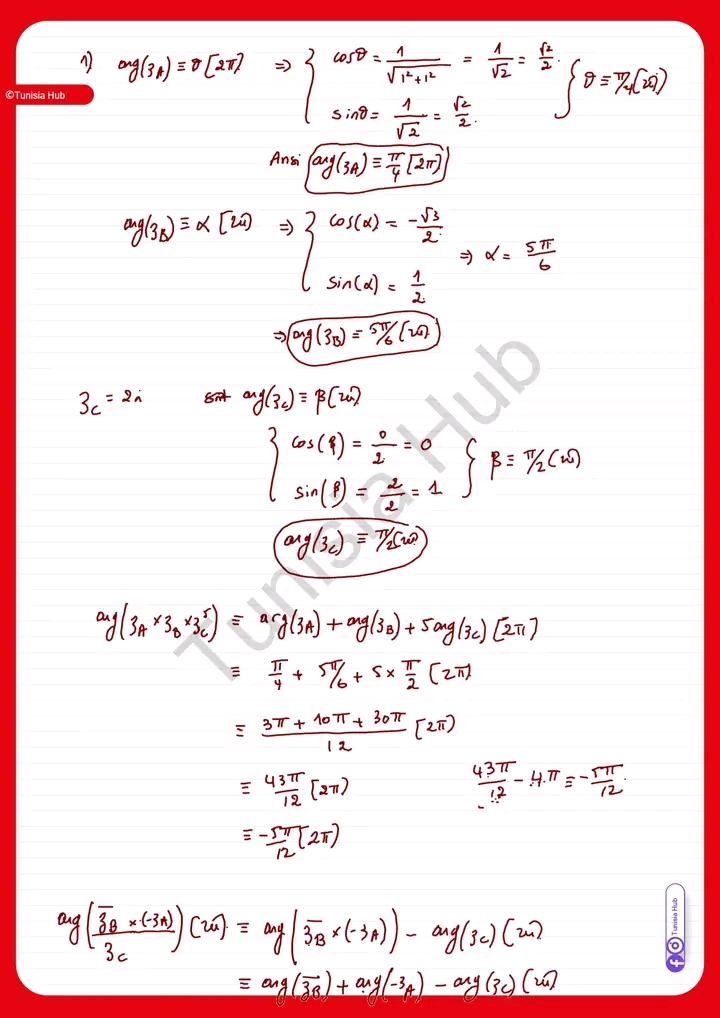 ©Tunisia Hub
1) arg(z_A) ≡ θ [2π] ⇒ { cosθ = 1/√(1²+1²) = 1/√2 = √2/2
sinθ = 1/√2 = √2/2. } θ ≡ π/4 [2π]
Ansi arg(z_A) ≡ π/4 [2π]
arg(z_B) ≡ α [2π] ⇒ { cos(α) = -√3/2
sin(α) = 1/2 ⇒ α = 5π/6
⇒ arg(z_B) ≡ 5π/6 [2π]
z_C = 2i arg(z_C) ≡ β [2π]
{ cos(β) = 0/2 = 0
sin(β) = 2/2 = 1 } β ≡ π/2 [2π]
arg(z_C) ≡ π/2 [2π]
arg(z_A × z_B × z_C⁵) ≡ arg(z_A) + arg(z_B) + 5 arg(z_C) [2π]
≡ π/4 + 5π/6 + 5 × π/2 [2π]
≡ (3π + 10π + 30π)/12 [2π]
≡ 43π/12 [2π] 43π/12 - 4π ≡ -5π/12
≡ -5π/12 [2π]
arg( (z̄_B × (-z_A))/z_C ) [2π] ≡ arg( z̄_B × (-z_A) ) - arg(z_C) [2π]
≡ arg(z̄_B) + arg(-z_A) - arg(z_C) [2π]
Tunisia Hub
Tunisia Hub